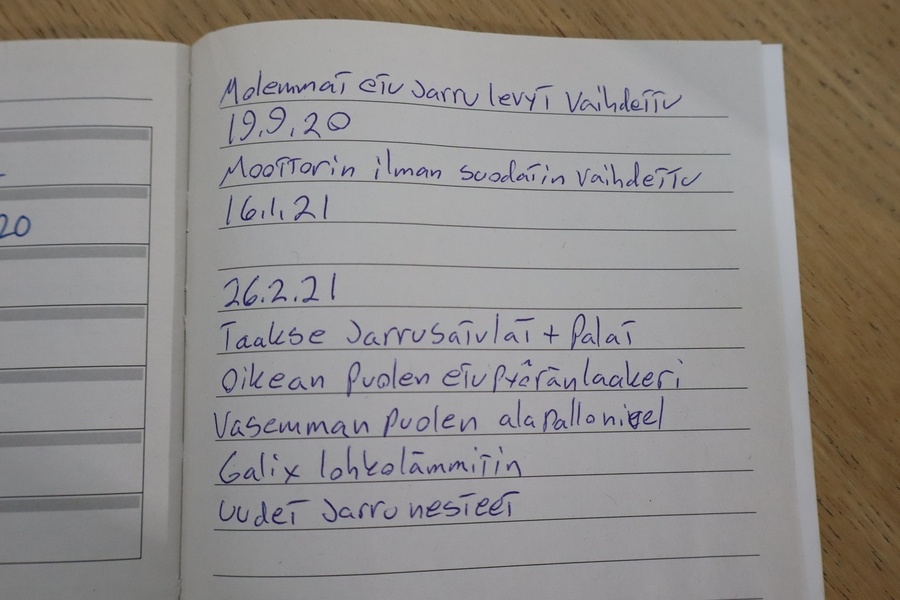 20
Molemmat etu Jarru levyt vaihdettu
19.9.20
Moottorin ilman suodatin vaihdettu
16.1.21
26.2.21
Taakse Jarrusatulat + Palat
Oikean Puolen etu Pyöränlaakeri
Vasemman Puolen alapallonivel
Calix lohkolämmitin
Uudet Jarru nesteet